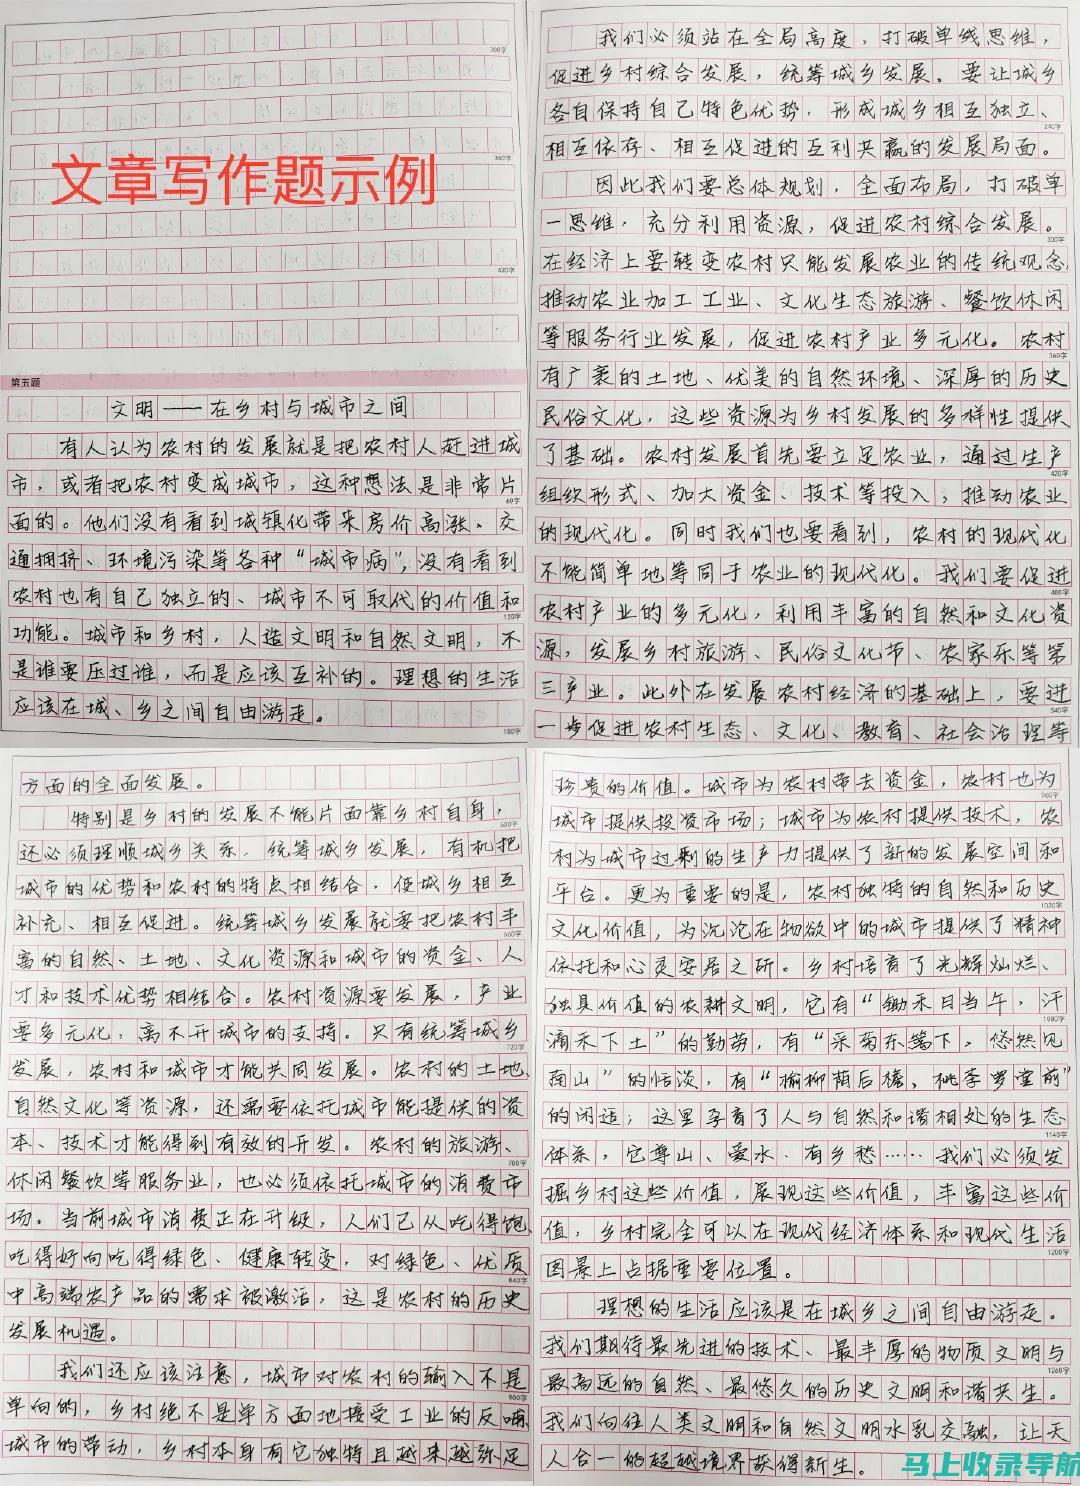 300字
360字
文章写作题示例
420字
第五题
文明——在乡村与城市之间
有人认为农村的发展就是把农村人赶进城
市，或者把农村变成城市，这种想法是非常片
60字
面的。他们没有看到城镇化带来房价高涨、交
通拥挤、环境污染等各种“城市病”，没有看到
农村也有自己独立的、城市不可取代的价值和
120字
功能。城市和乡村，人造文明和自然文明，不
是谁要压过谁，而是应该互补的。理想的生活
应该在城、乡之间自由游走。
180字
我们必须站在全局高度，打破单线思维，
促进乡村综合发展，统筹城乡发展。要让城乡
各自保持自己特色优势，形成城乡相互独立、
240字
相互依存、相互促进的互利共赢的发展局面。
因此我们要总体规划，全面布局，打破单
一思维，充分利用资源，促进农村综合发展。
300字
在经济上要转变农村只能发展农业的传统观念，
推动农业加工工业、文化生态旅游、餐饮休闲
等服务行业发展，促进农村产业多元化。农村
360字
有广袤的土地、优美的自然环境、深厚的历史
民俗文化，这些资源为乡村发展的多样性提供
了基础。农村发展首先要立足农业，通过生产
420字
组织形式、加大资金、技术等投入，推动农业
的现代化。同时我们也要看到，农村的现代化
不能简单地等同于农业的现代化。我们要促进
480字
农村产业的多元化，利用丰富的自然和文化资
源，发展乡村旅游、民俗文化节、农家乐等第
三产业。此外在发展农村经济的基础上，要进
540字
一步促进农村生态、文化、教育、社会治理等
方面的全面发展。
特别是乡村的发展不能片面靠乡村自身，
600字
还必须理顺城乡关系，统筹城乡发展，有机把
城市的优势和农村的特点相结合，使城乡相互
补充、相互促进。统筹城乡发展就要把农村丰
660字
富的自然、土地、文化资源和城市的资金、人
才和技术优势相结合。农村资源要发展，产业
要多元化，离不开城市的支持。只有统筹城乡
720字
发展，农村和城市才能共同发展。农村的土地、
自然文化等资源，还需要依托城市能提供的资
本、技术才能得到有效的开发。农村的旅游、
780字
休闲餐饮等服务业，也必须依托城市的消费市
场。当前城市消费正在升级，人们已从吃得饱、
吃得好向吃得绿色、健康转变，对绿色、优质
840字
中高端农产品的需求被激活，这是农村的历史
发展机遇。
我们还应该注意，城市对农村的输入不是
900字
单向的，乡村绝不是单方面地接受工业的反哺，
城市的带动，乡村本身有它独特且越来越弥足
珍贵的价值。城市为农村带去资金，农村也为
960字
城市提供投资市场；城市为农村提供技术，农
村为城市过剩的生产力提供了新的发展空间和
平台。更为重要的是，农村独特的自然和历史
1020字
文化价值，为沉沦在物欲中的城市提供了精神
依托和心灵安居之所。乡村培育了光辉灿烂、
独具价值的农耕文明，它有“锄禾日当午，汗
1080字
滴禾下土”的勤劳，有“采菊东篱下，悠然见
南山”的恬淡，有“榆柳荫后檐，桃李罗堂前”
的闲适；这里孕育了人与自然和谐相处的生态
1140字
体系，它尊山、爱水、有乡愁……我们必须发
掘乡村这些价值，展现这些价值，丰富这些价
值，乡村完全可以在现代经济体系和现代生活
1200字
图景上占据重要位置。
理想的生活应该是在城乡之间自由游走。
我们期待最先进的技术、最丰厚的物质文明与
1260字
最高远的自然、最悠久的历史文明和谐共生。
我们向往人类文明和自然文明水乳交融，让天
人合一的超越境界获得新生。
马上收录导航